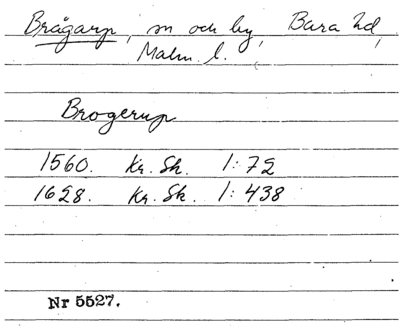 Brågarp, sn och by, Bara hd,
Malm. l.
Brogerup
1560. Kr. Sk. 1:72
1628. Kr. Sk. 1:438
Nr 5527.